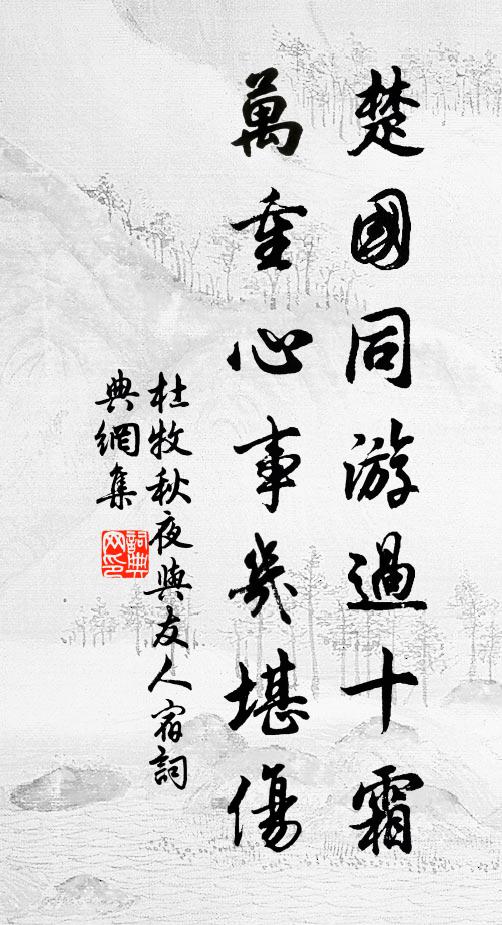 楚國同游過十霜
萬重心事幾堪傷
杜牧秋夜與友人宿詞
典網集
詞典
网印